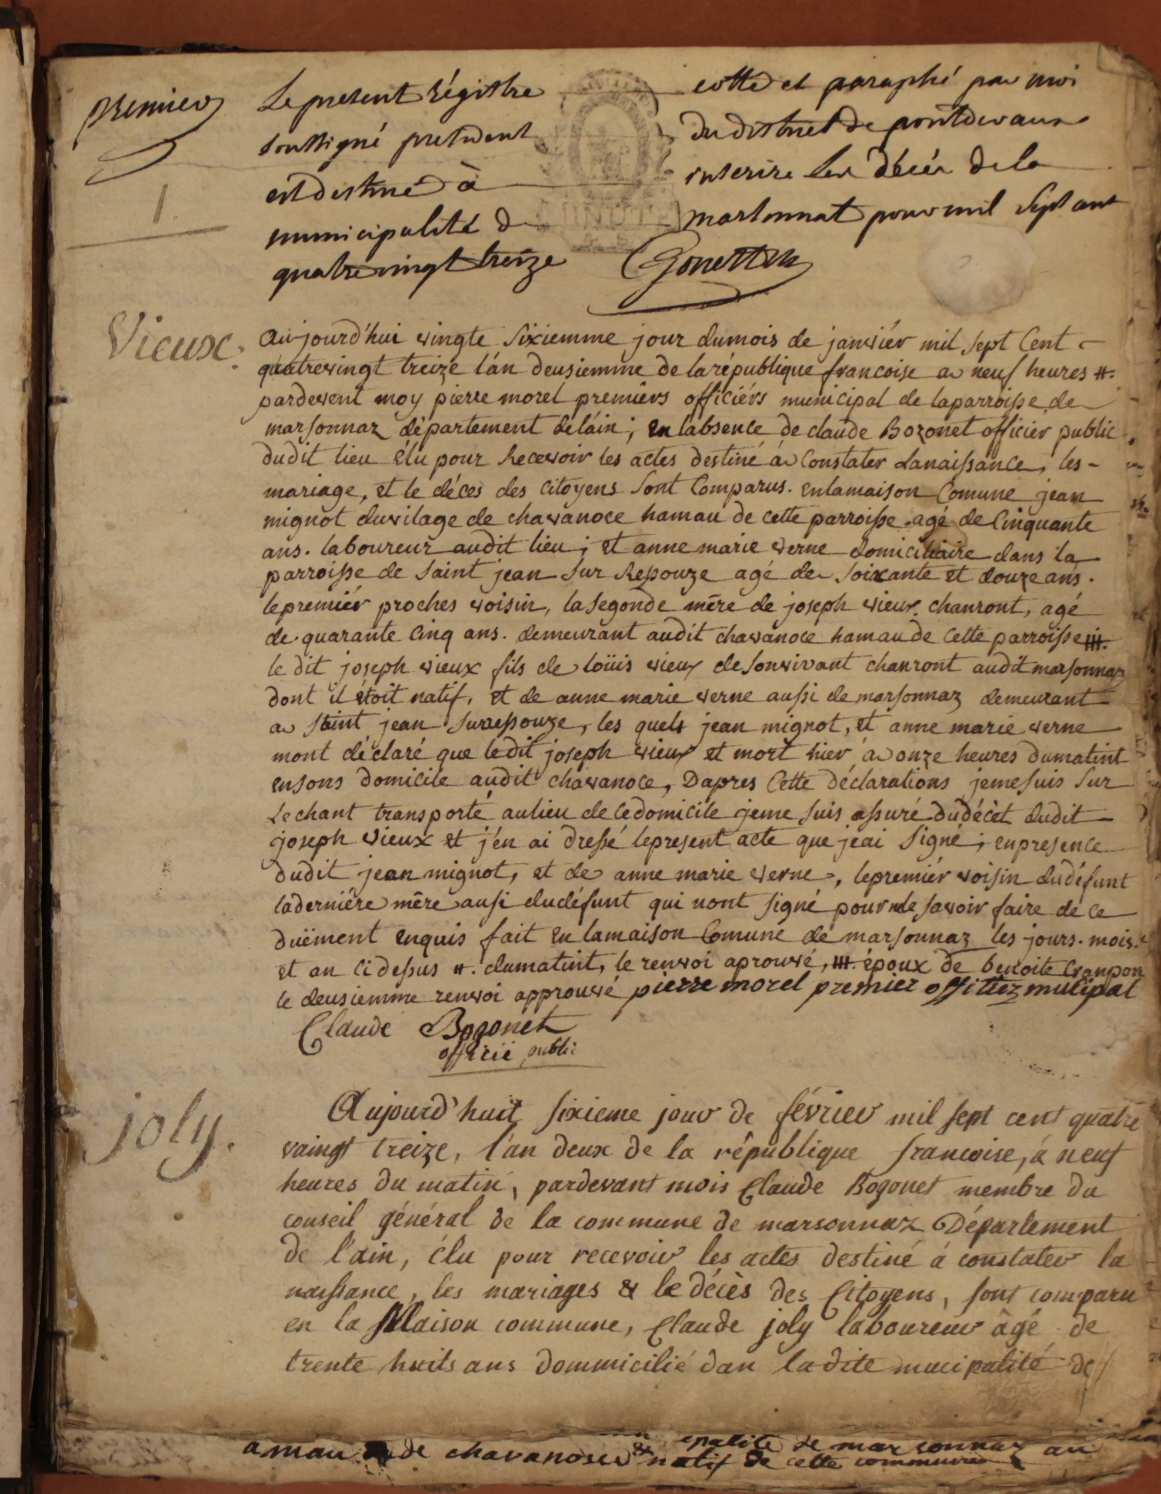 premier
1
Le present Régistre cotté et paraphé par moi
soussigné president du district de pontdevaux
est destiné à inscrire les décés de la
municipalité de marsonnat pour mil sept cent
quatrevingt treize
Vieux.
Aujourd'hui vingte sixiemme jour dumois de janviér mil sept Cent
quatrevingt treize l'án deusiemme de larépublique francoise a neuf heures #.
pardevent moy pierre morel premiers officiérs municipal de laparroisse de
marsonnaz département de l'áin; en labsence de claude Bozonet officiér public
dudit lieu élu pour Recevoir les actes destiné á Constater lanaissance, les
mariage, et le décés des Citoyens sont Comparus. enlamaison Comune jean
mignot duvilage de chavanoce hamau de cette parroisse agé de Cinquante
ans. laboureur audit lieu; et anne marie verne domiciliaire dans la
parroisse de saint jean sur Repouze agé de soixante et douze ans.
lepremiér proches voisin, la segonde mêre de joseph vieux chanront, agé
de quarante Cinq ans. demeurant audit chavanoce hamau de Cette parroisse ###.
le dit joseph vieux fils de loüis vieux de sonvivant chanront audit marsonnaz
dont il étoit natif, et de anne marie verne aussi de marsonnaz demeurant
a saint jean suressouze, les quels jean mignot, et anne marie verne
mont déclaré que ledit joseph vieux et mort hier á onze heures dumatint
ensons domicile audit chavanoce, Dapres Cette déclarations jemesuis sur
Lechant transporté aulieu de Cedomicile jeme suis assuré dudécèt dudit
joseph vieux et j'én ai dressé lepresent acte que jeai signé; enpresence
dudit jean mignot, et de anne marie verne, lepremiér voisin dudéfunt
laderniére mêre ausi dudéfunt qui nont signé pour nde savoir faire de ce
duëment enquis fait en lamaison Comune de marsonnaz les jours. mois.
et an Cidessus #. dumatint, le renvoi aprouvé, ###. époux de benoite Cranpon
le deusiemme renvoi approuvé pierre morel premier offitiez mulipal
Claude Bozonet
officié public
joly.
Aujourd'huit sixieme jour de février mil sept cent quatre
vaingt treize, l'an deux de la république francoise, á neuf
heures du matin, pardevant mois Claude Bozonet membre du
conseil général de la commune de marsonnaz Département
de l'ain, élu pour recevoir les actes destiné á constater la
naissance, les mariages & le décès des Citoyens, sont comparu
en la Maison commune, Claude joly laboureur âgé de
trente huits ans dommicilié dan ladite mucipalité de
amau de chavanosce & natif de cette commune
epalite de marsonnaz au